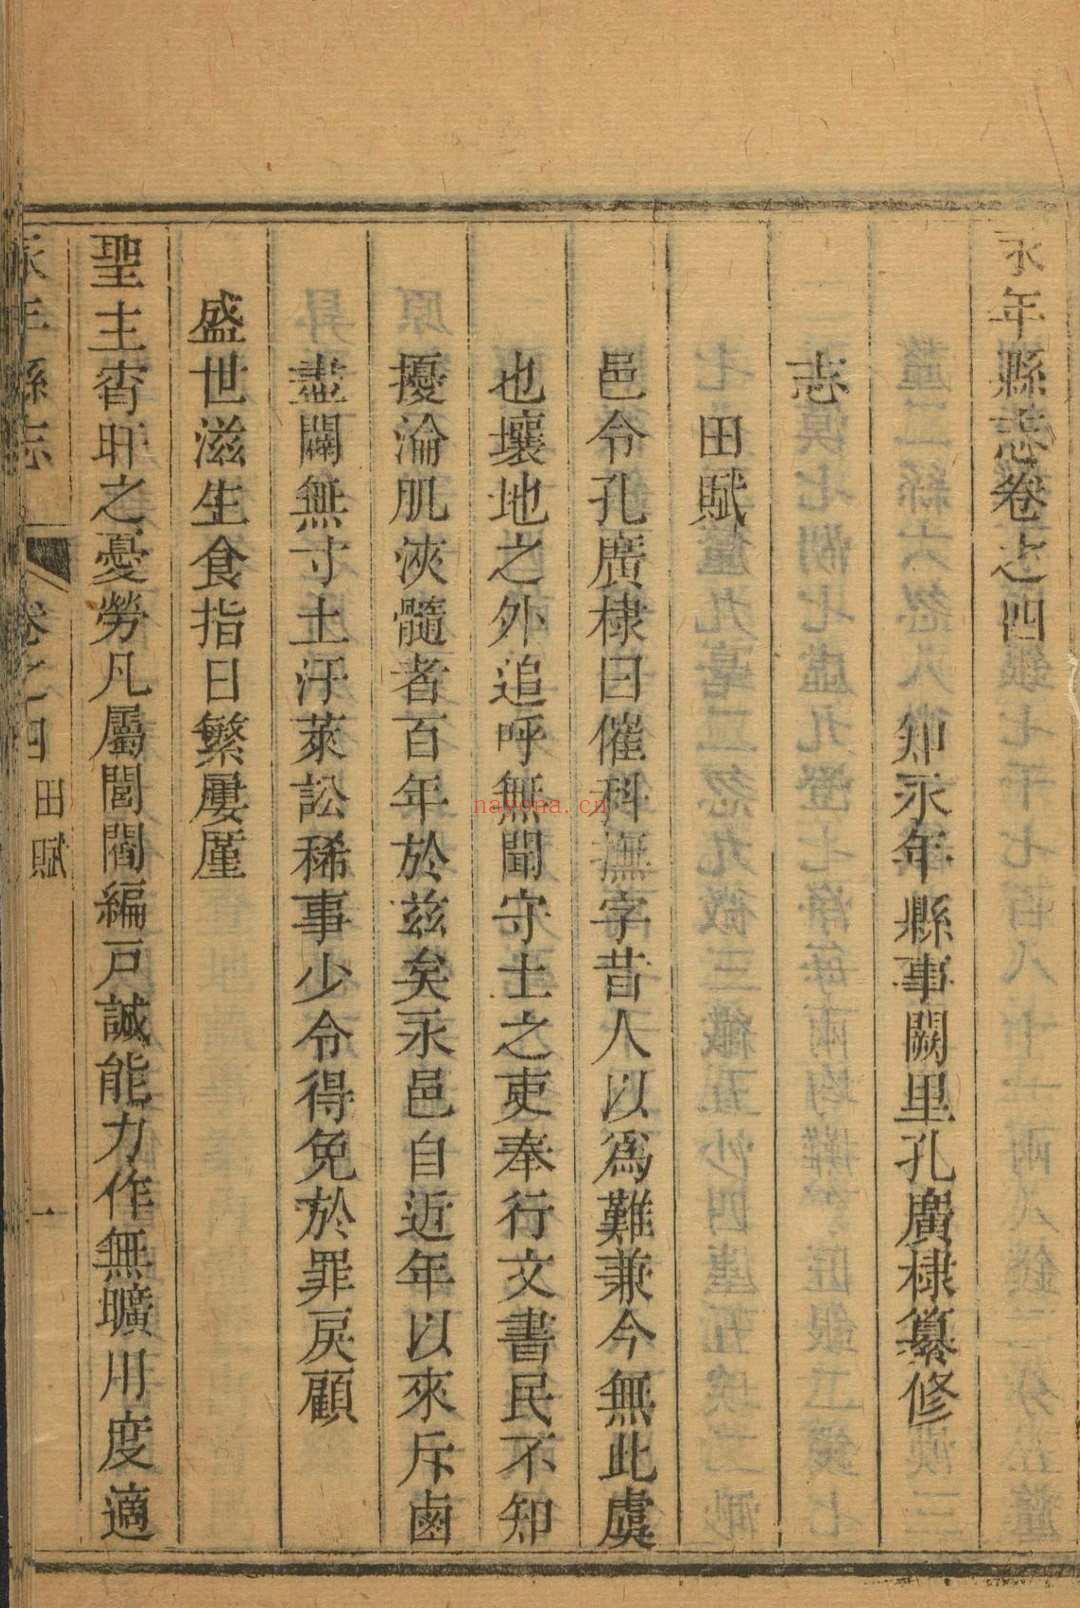 永年縣志卷之四
知永年縣事闕里孔廣棣纂修
志
田賦
邑令孔廣棣曰催科撫字昔人以為難兼今無此虞
也壤地之外追呼無聞守土之吏奉行文書民不知
擾淪肌浹髓者百年於兹矣永邑自近年以來斥鹵
盡闢無寸土汙萊訟稀事少令得免於罪戾顧
盛世滋生食指日繁屢廑
聖主宵旰之憂勞凡屬閭閻編戶誠能力作無曠用度適
永年縣志 卷之四 田賦 一
nayona.cn